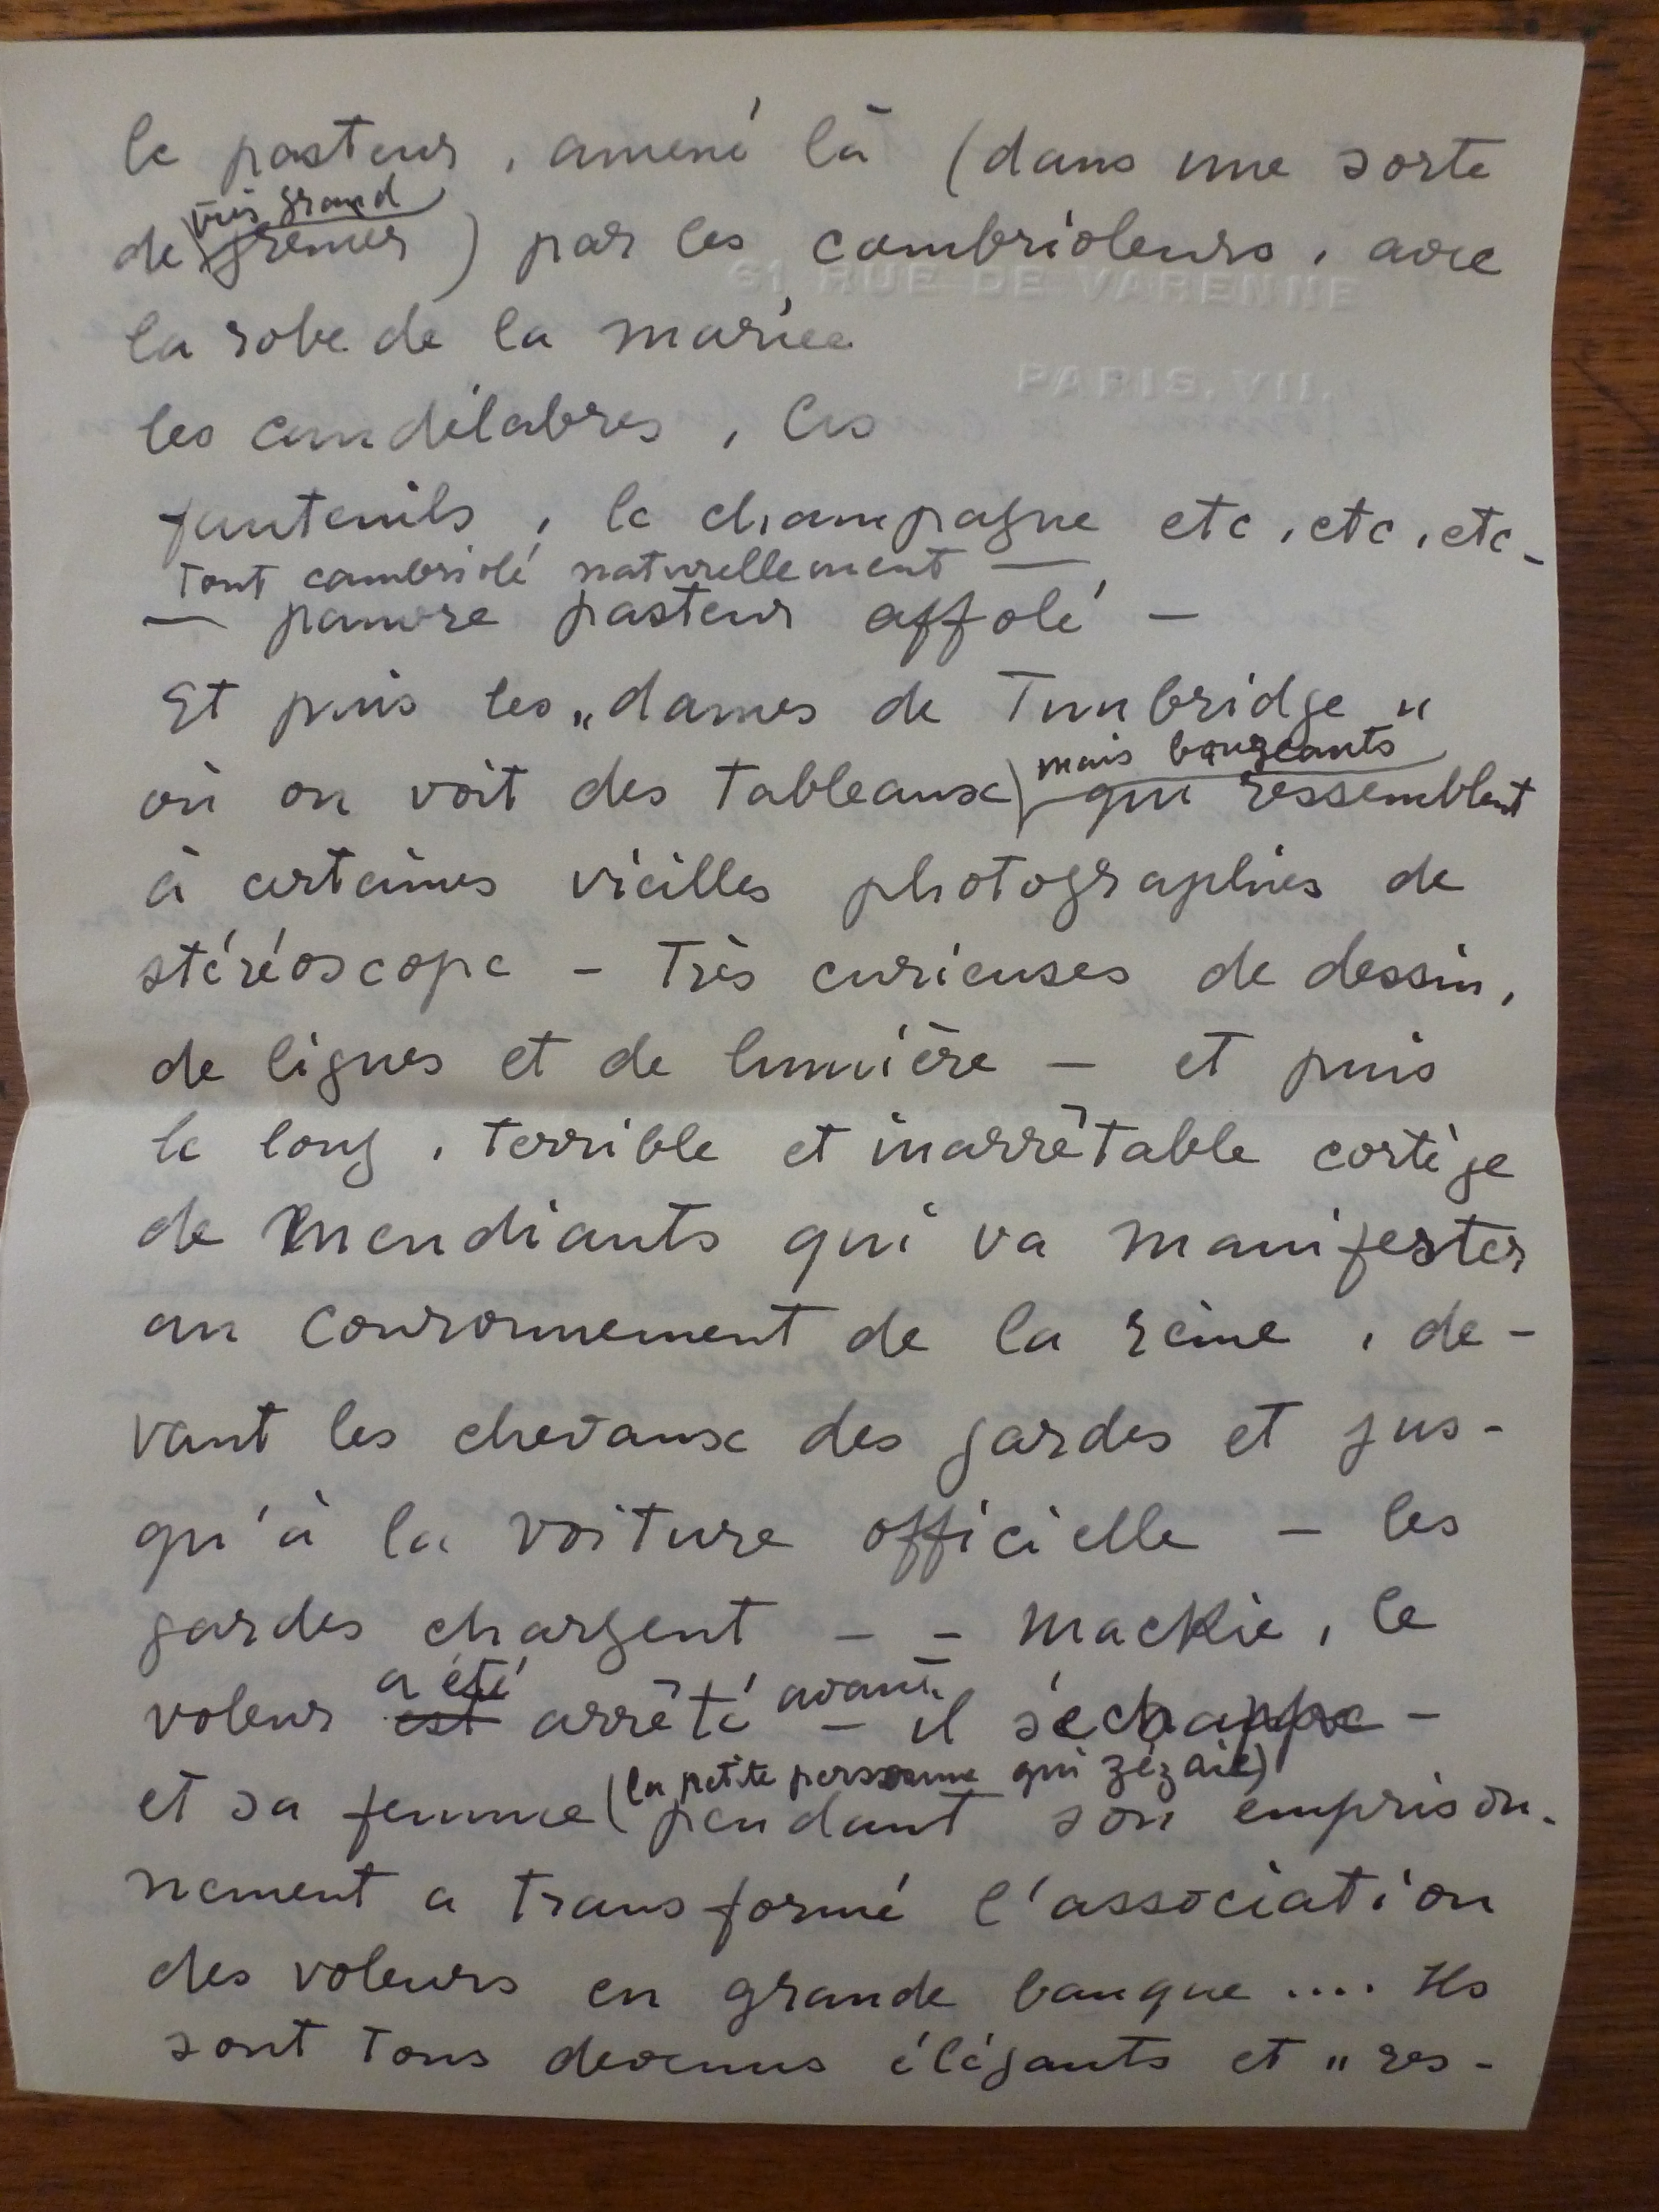 le pasteur, amené là (dans une sorte
très grand
de grenier) par les cambrioleurs, avec
61 RUE DE VARENNE
la robe de la mariée
PARIS. VII.
les candélabres, les
fauteuils, le champagne etc, etc, etc -
Tout cambriolé naturellement —
— pauvre pasteur affolé —
Et puis les „dames de Tunbridge"
mais bougeants
où on voit des Tableaux qui ressemblent
à certaines vieilles photographies de
stéréoscope - Très curieuses de dessin,
de lignes et de lumière — et puis
le long, terrible et inarrêtable cortège
de Mendiants qui va manifester
au couronnement de la reine, de-
vant les chevaux des gardes et jus-
qu'à la voiture officielle - les
gardes chargent - - Mackie, le
a été avant
voleur est arrêté - il s'échappe -
(la petite personne qui zézaie)
et sa femme pendant son emprison-
nement a transformé l'association
des voleurs en grande banque .... Ils
sont Tous devenus élégants et „res-